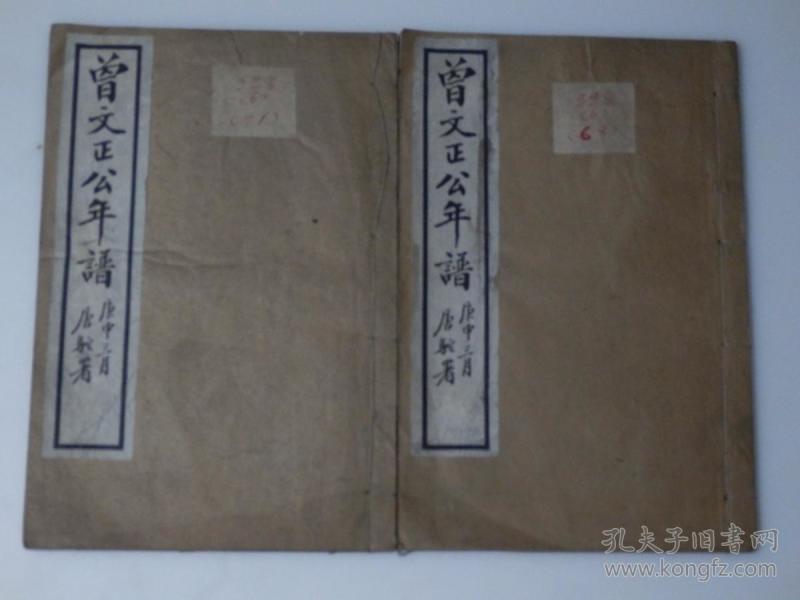 曾文正公年譜
庚申三月
署
曾文正公年譜
庚申三月
署
孔夫子旧书网
www.kongfz.com